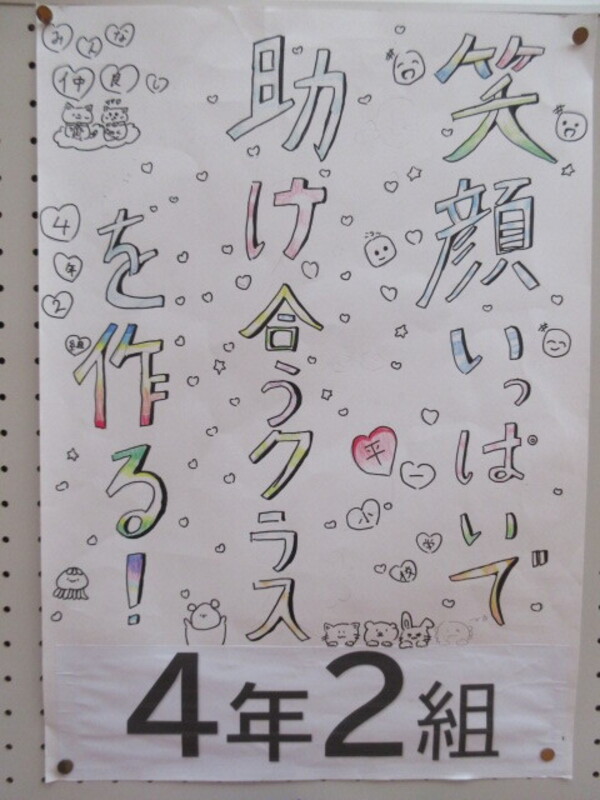 笑顔いっぱいで
助け合うクラス
を作る!
みんな
仲良し
4年2組
平一小学校
4年2組